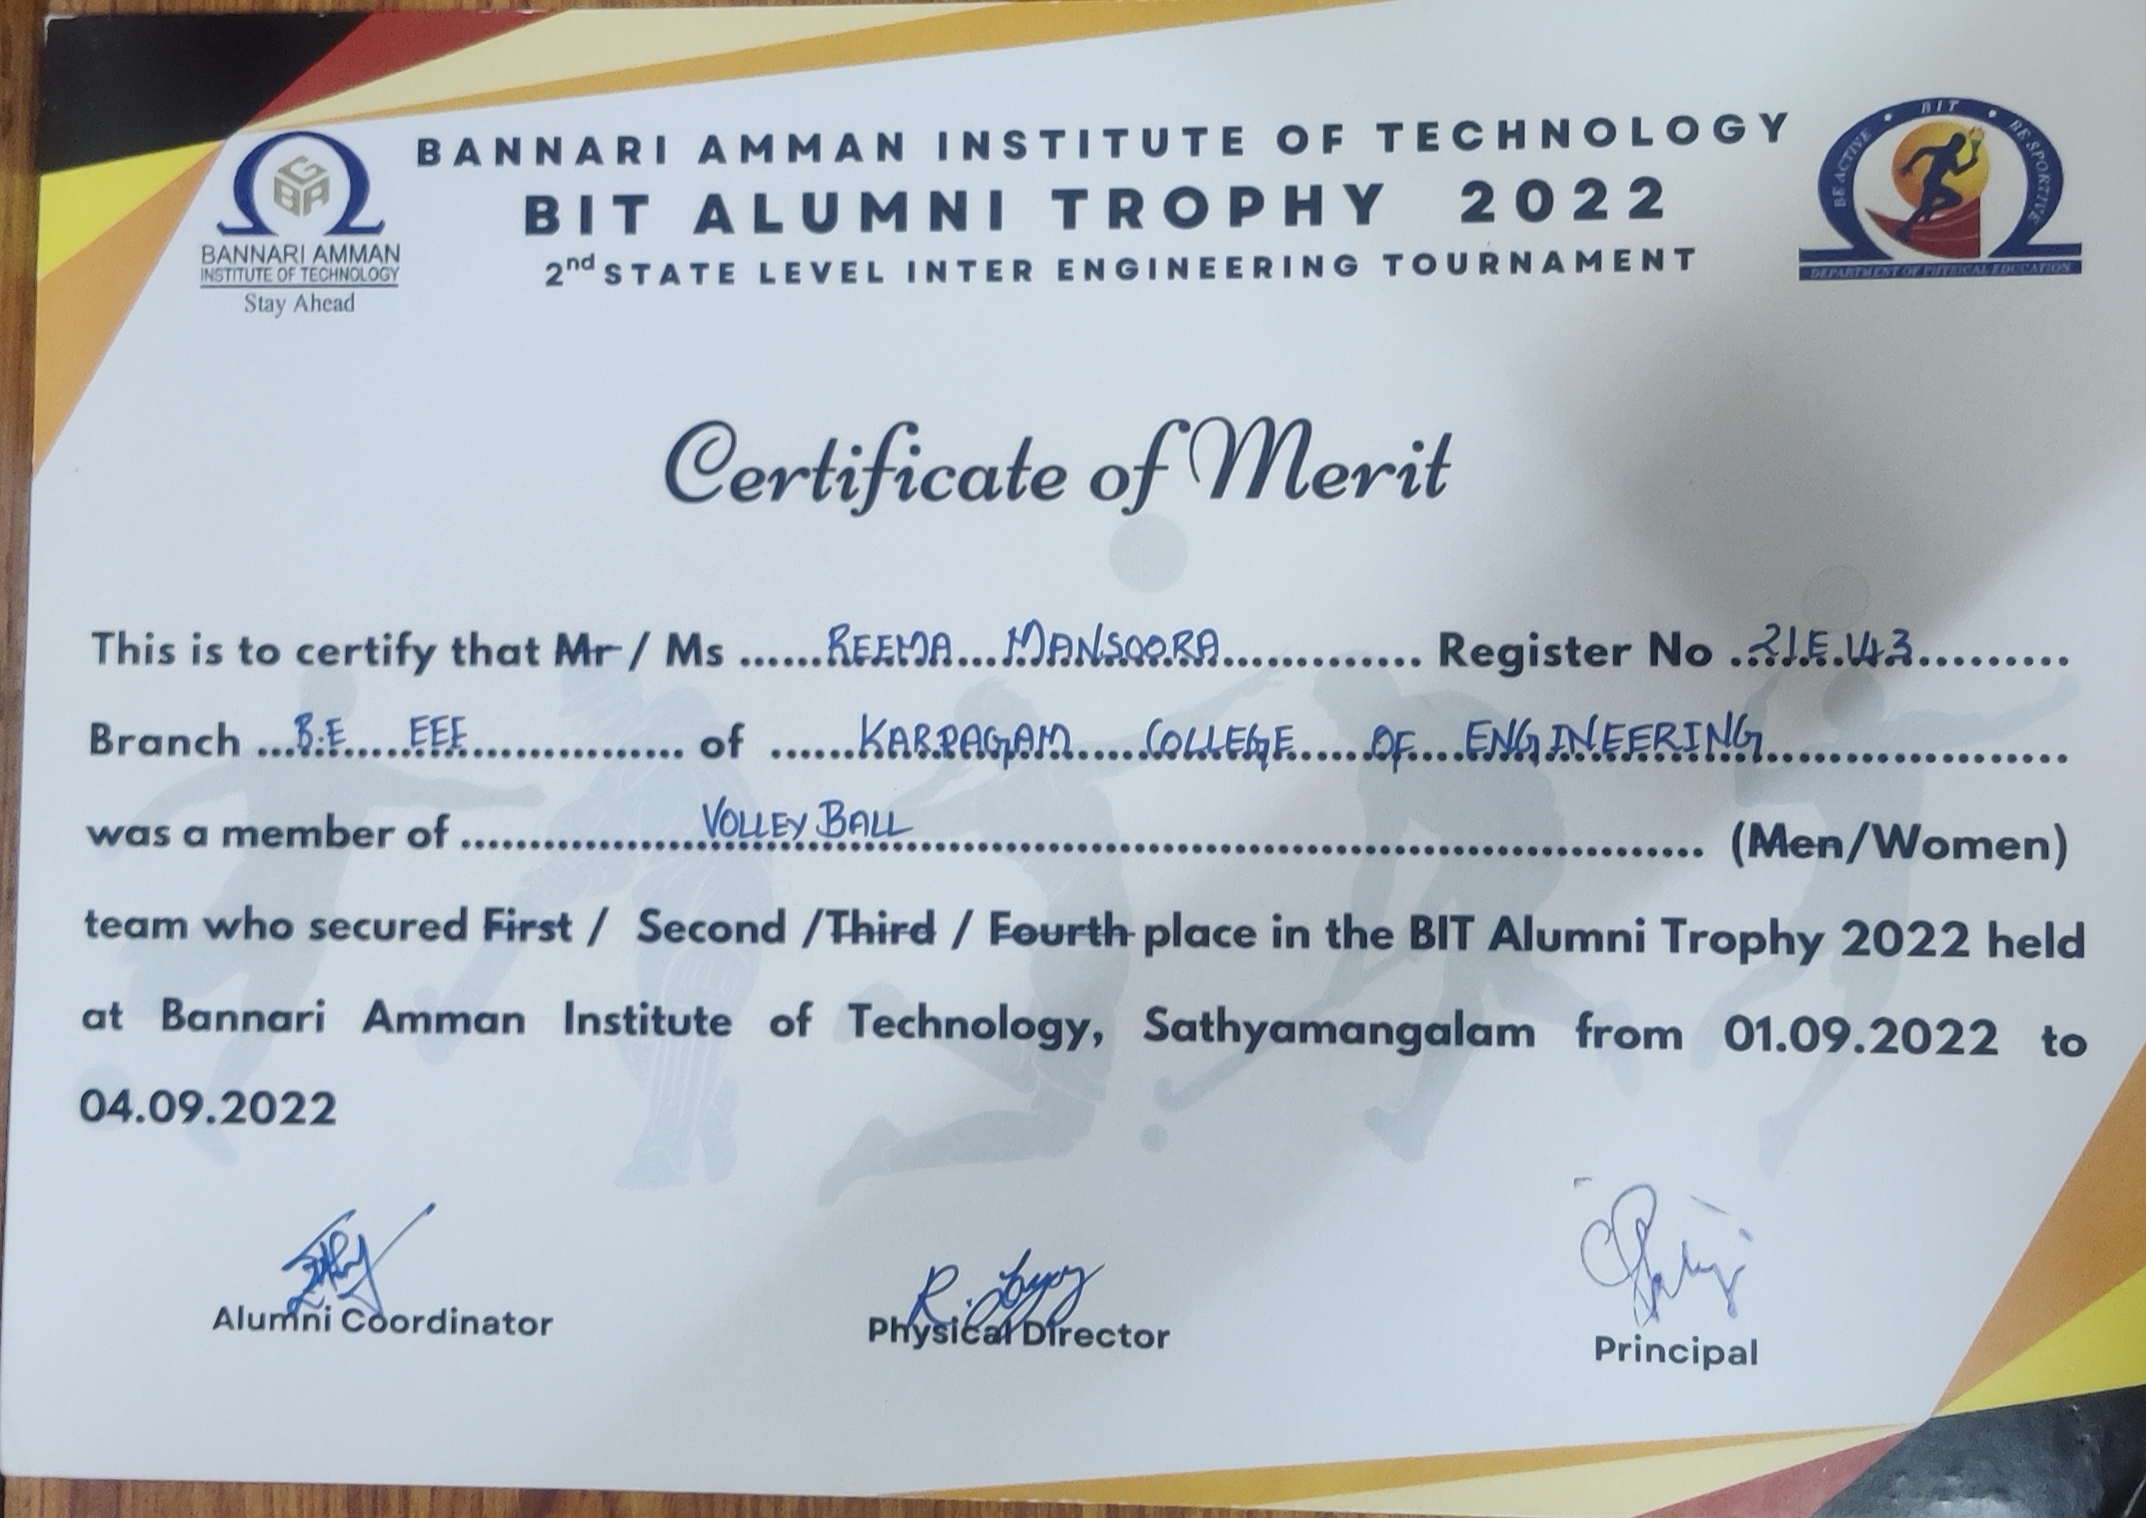 BANNARI AMMAN INSTITUTE OF TECHNOLOGY
BIT ALUMNI TROPHY 2022
2nd STATE LEVEL INTER ENGINEERING TOURNAMENT
GBA
BANNARI AMMAN
INSTITUTE OF TECHNOLOGY
Stay Ahead
BE ACTIVE • BIT • BE SPORTIVE
DEPARTMENT OF PHYSICAL EDUCATION
Certificate of Merit
This is to certify that Mr / Ms ......REEMA...MANSOORA............. Register No ..21E143..........
Branch ...B.E.....EEE................ of ......KARPAGAM.....COLLEGE.....OF...ENGINEERING......................
was a member of ....................VOLLEY BALL............................................................ (Men/Women)
team who secured First / Second /Third / Fourth place in the BIT Alumni Trophy 2022 held
at Bannari Amman Institute of Technology, Sathyamangalam from 01.09.2022 to
04.09.2022
Alumni Coordinator
Physical Director
Principal